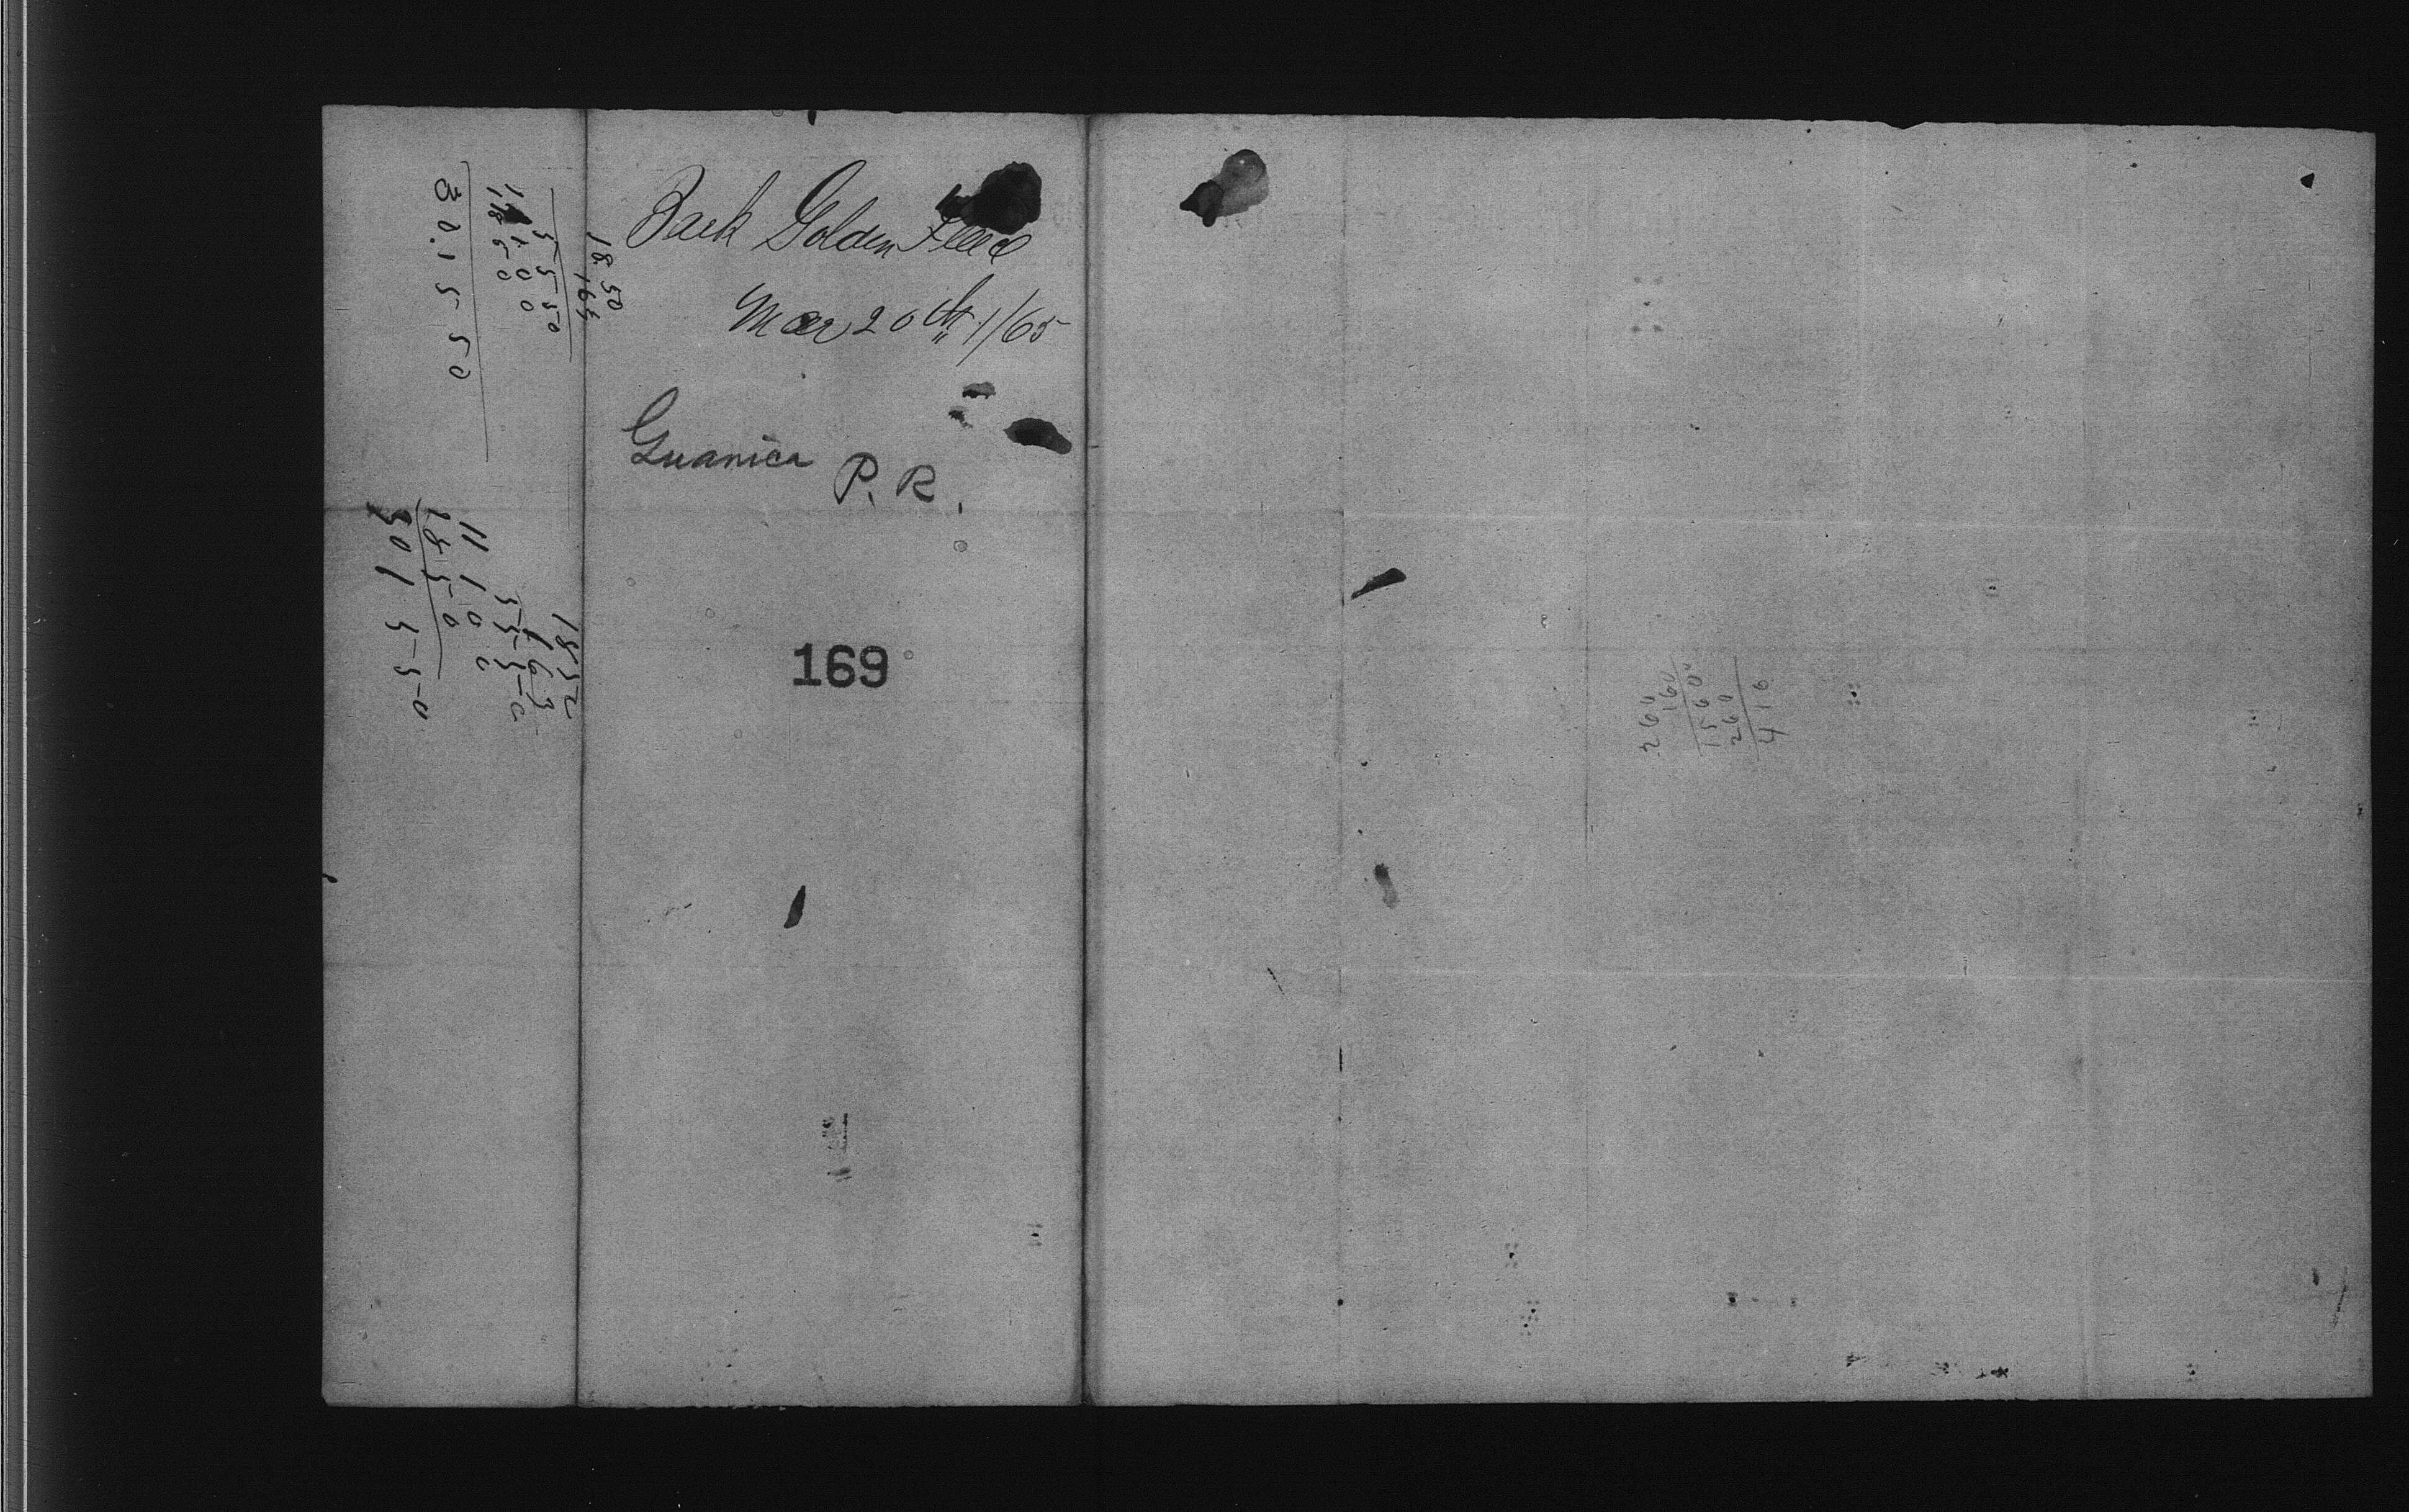 Bark Golden Fleece
Mar 20th 1/65
Guanica
P. R.
169
18 50
163
55 50
11 1 0 0
18 5 0
30.15 50
1850
163
5550
11100
1850
301550
260
160
15600
260
416